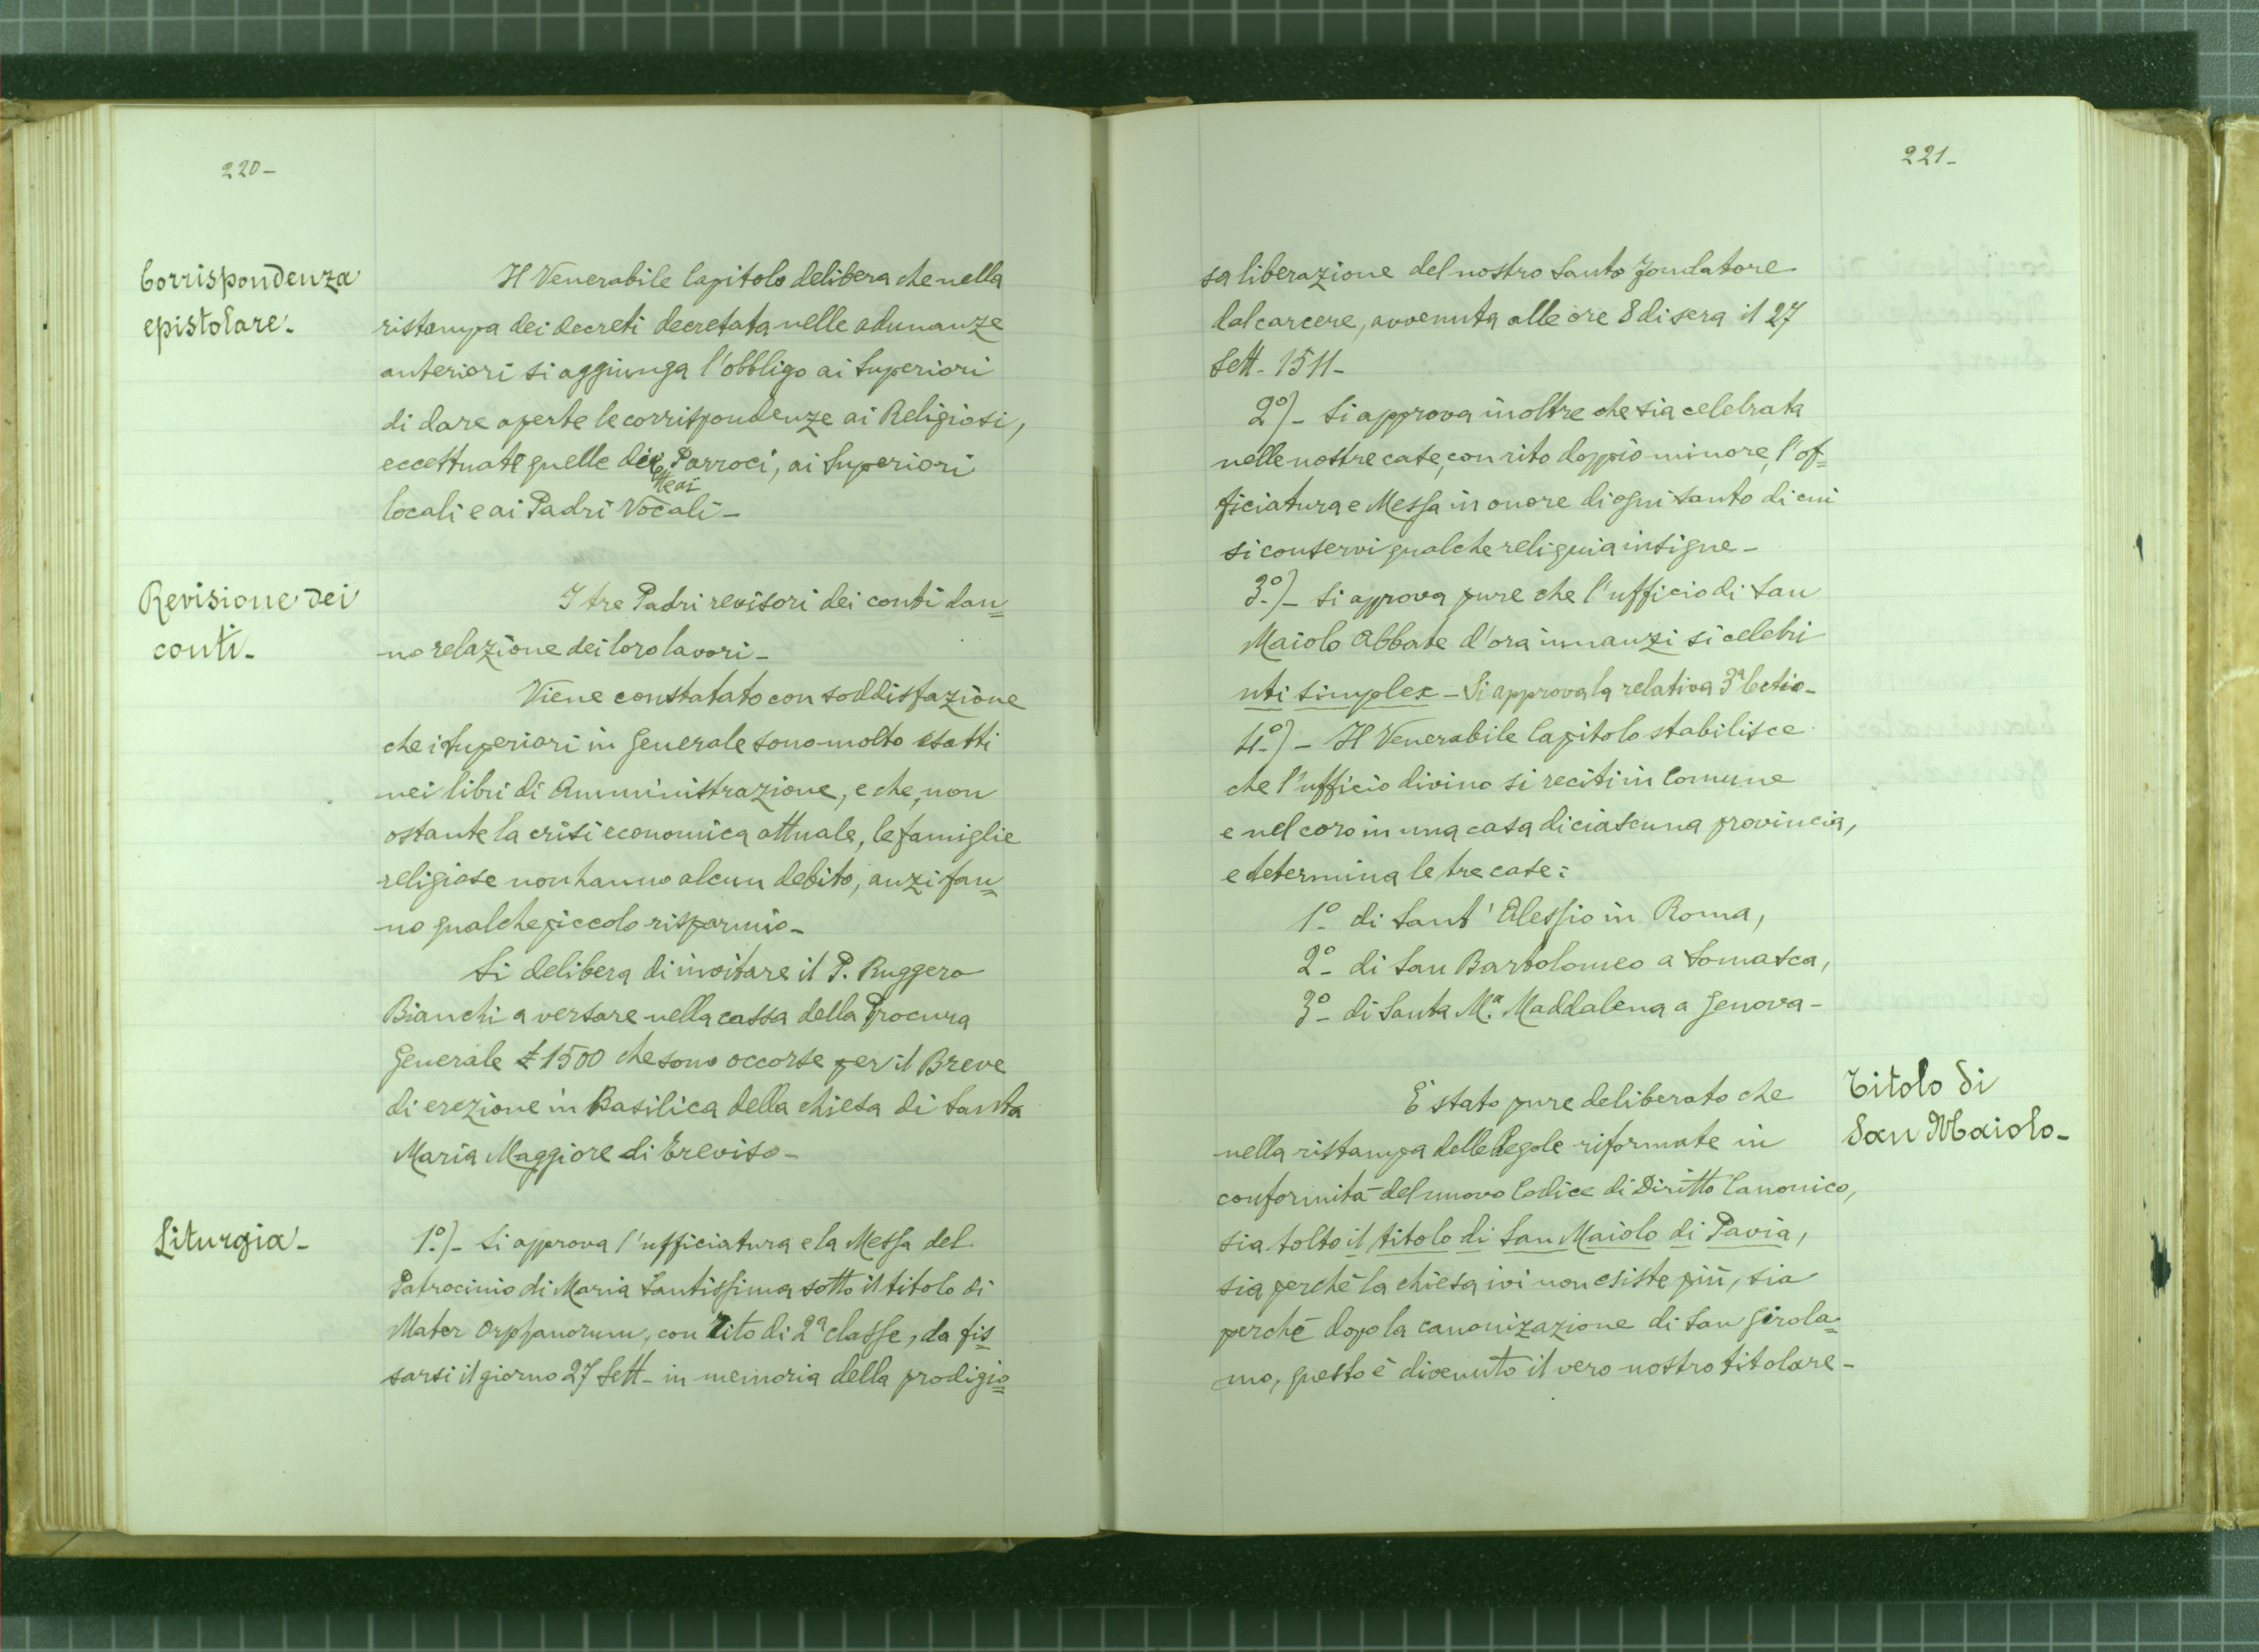 220-
Corrispondenza
epistolare-
Il Venerabile Capitolo delibera che nella
ristampa dei decreti decretata nelle adunanze
anteriori si aggiunga l'obbligo ai Superiori
di dare aperte le corrispondenze ai Religiosi,
eccettuate quelle dei Parroci, ai Superiori
locali e ai Padri Vocali-
Revisione dei
conti-
I tre Padri revisori dei conti dan=
no relazione dei loro lavori-
Viene constatato con soddisfazione
che i Superiori in Generale sono molto esatti
nei libri di Amministrazione, e che, non
ostante la crisi economica attuale, le famiglie
religiose non hanno alcun debito, anzi fan=
no qualche piccolo risparmio-
Si delibera di invitare il P. Ruggero
Bianchi a versare nella cassa della Procura
Generale £ 1500 che sono occorse per il Breve
di erezione in Basilica della chiesa di Santa
Maria Maggiore di Treviso-
Liturgia-
1º)- Si approva l'ufficiatura e la Messa del
Patrocinio di Maria Santissima sotto il titolo di
Mater Orphanorum, con Rito di 2ª classe, da fis=
sarsi il giorno 27 Sett- in memoria della prodigio=
221-
sa liberazione del nostro Santo Fondatore
dal carcere, avvenuta alle ore 8 di sera il 27
Sett- 1511-
2º)- Si approva inoltre che sia celebrata
nelle nostre case, con rito doppio minore, l'of=
ficiatura e Messa in onore di ogni Santo di cui
si conservi qualche reliquia insigne-
3º)- Si approva pure che l'ufficio di San
Maiolo Abbate d'ora innanzi si celebri
uti simplex- Si approva la relativa 3ª lectio-
4º)- Il Venerabile Capitolo stabilisce
che l'ufficio divino si reciti in Comune
e nel coro in una casa di ciascuna provincia,
e determina le tre case:
1º- di Sant'Alessio in Roma,
2º- di San Bartolomeo a Somasca,
3º- di Santa Mª. Maddalena a Genova-
Titolo di
San Maiolo-
È stato pure deliberato che
nella ristampa delle Regole riformate in
conformità del nuovo Codice di Diritto Canonico,
sia tolto il titolo di San Maiolo di Pavia,
sia perchè la chiesa ivi non esiste più, sia
perchè dopo la canonizazione di San Girola=
mo, questo è divenuto il vero nostro titolare-